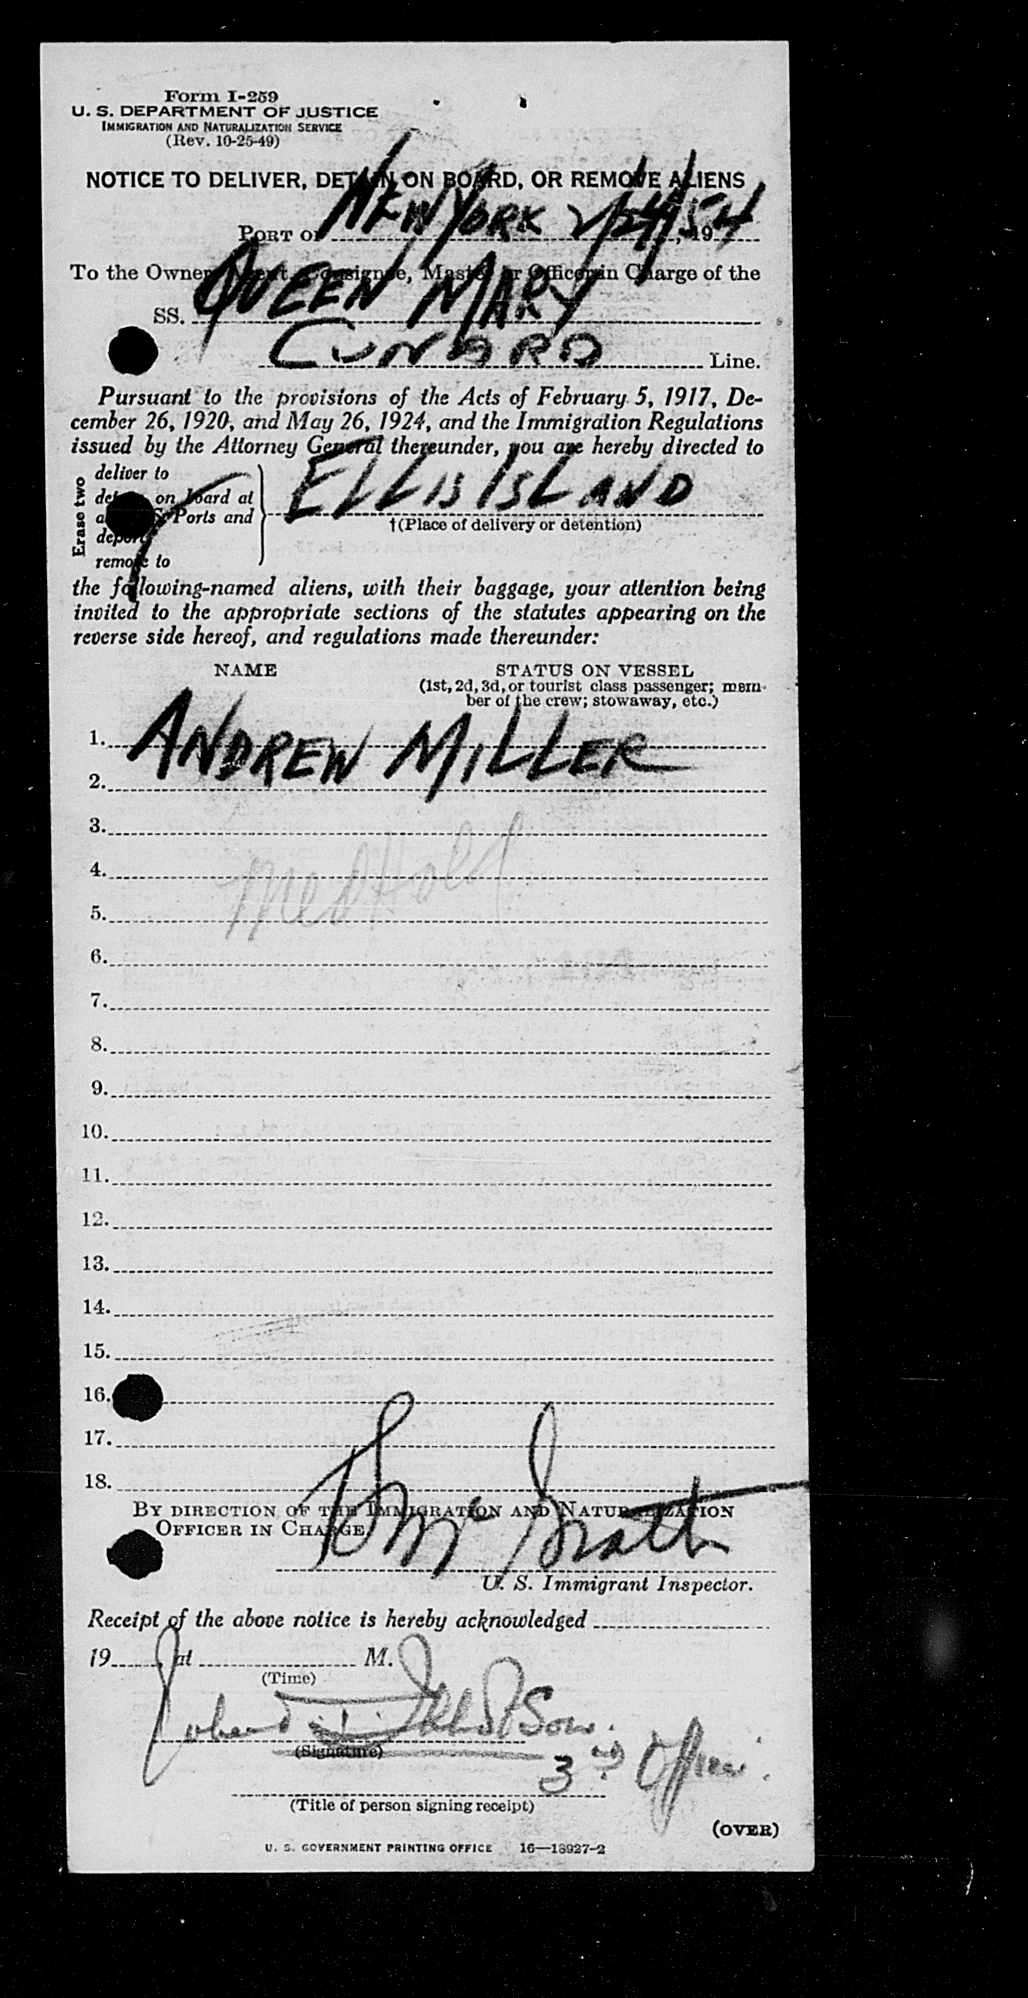 Form I-259
U. S. DEPARTMENT OF JUSTICE
IMMIGRATION AND NATURALIZATION SERVICE
(Rev. 10-25-49)
NOTICE TO DELIVER, DETAIN ON BOARD, OR REMOVE ALIENS
PORT OF NEW YORK 2/24/, 1954
To the Owner, Agent, Consignee, Master or Officer in Charge of the
SS. QUEEN MARY
CUNARD Line.
Pursuant to the provisions of the Acts of February 5, 1917, De-
cember 26, 1920, and May 26, 1924, and the Immigration Regulations
issued by the Attorney General thereunder, you are hereby directed to
Erase two
deliver to
detain on board at
Ports and
deport
remove to
ELLIS ISLAND
†(Place of delivery or detention)
the following-named aliens, with their baggage, your attention being
invited to the appropriate sections of the statutes appearing on the
reverse side hereof, and regulations made thereunder:
NAME STATUS ON VESSEL
(1st, 2d, 3d, or tourist class passenger; mem-
ber of the crew; stowaway, etc.)
1. ANDREW MILLER
2.
3.
4. Med Hold
5.
6.
7.
8.
9.
10.
11.
12.
13.
14.
15.
16.
17.
18.
BY DIRECTION OF THE IMMIGRATION AND NATURALIZATION
OFFICER IN CHARGE
McGrath
U. S. Immigrant Inspector.
Receipt of the above notice is hereby acknowledged
19 , at M.
(Time)
(Signature)
3rd Officer.
(Title of person signing receipt)
(OVER)
U. S. GOVERNMENT PRINTING OFFICE 16—18927-2